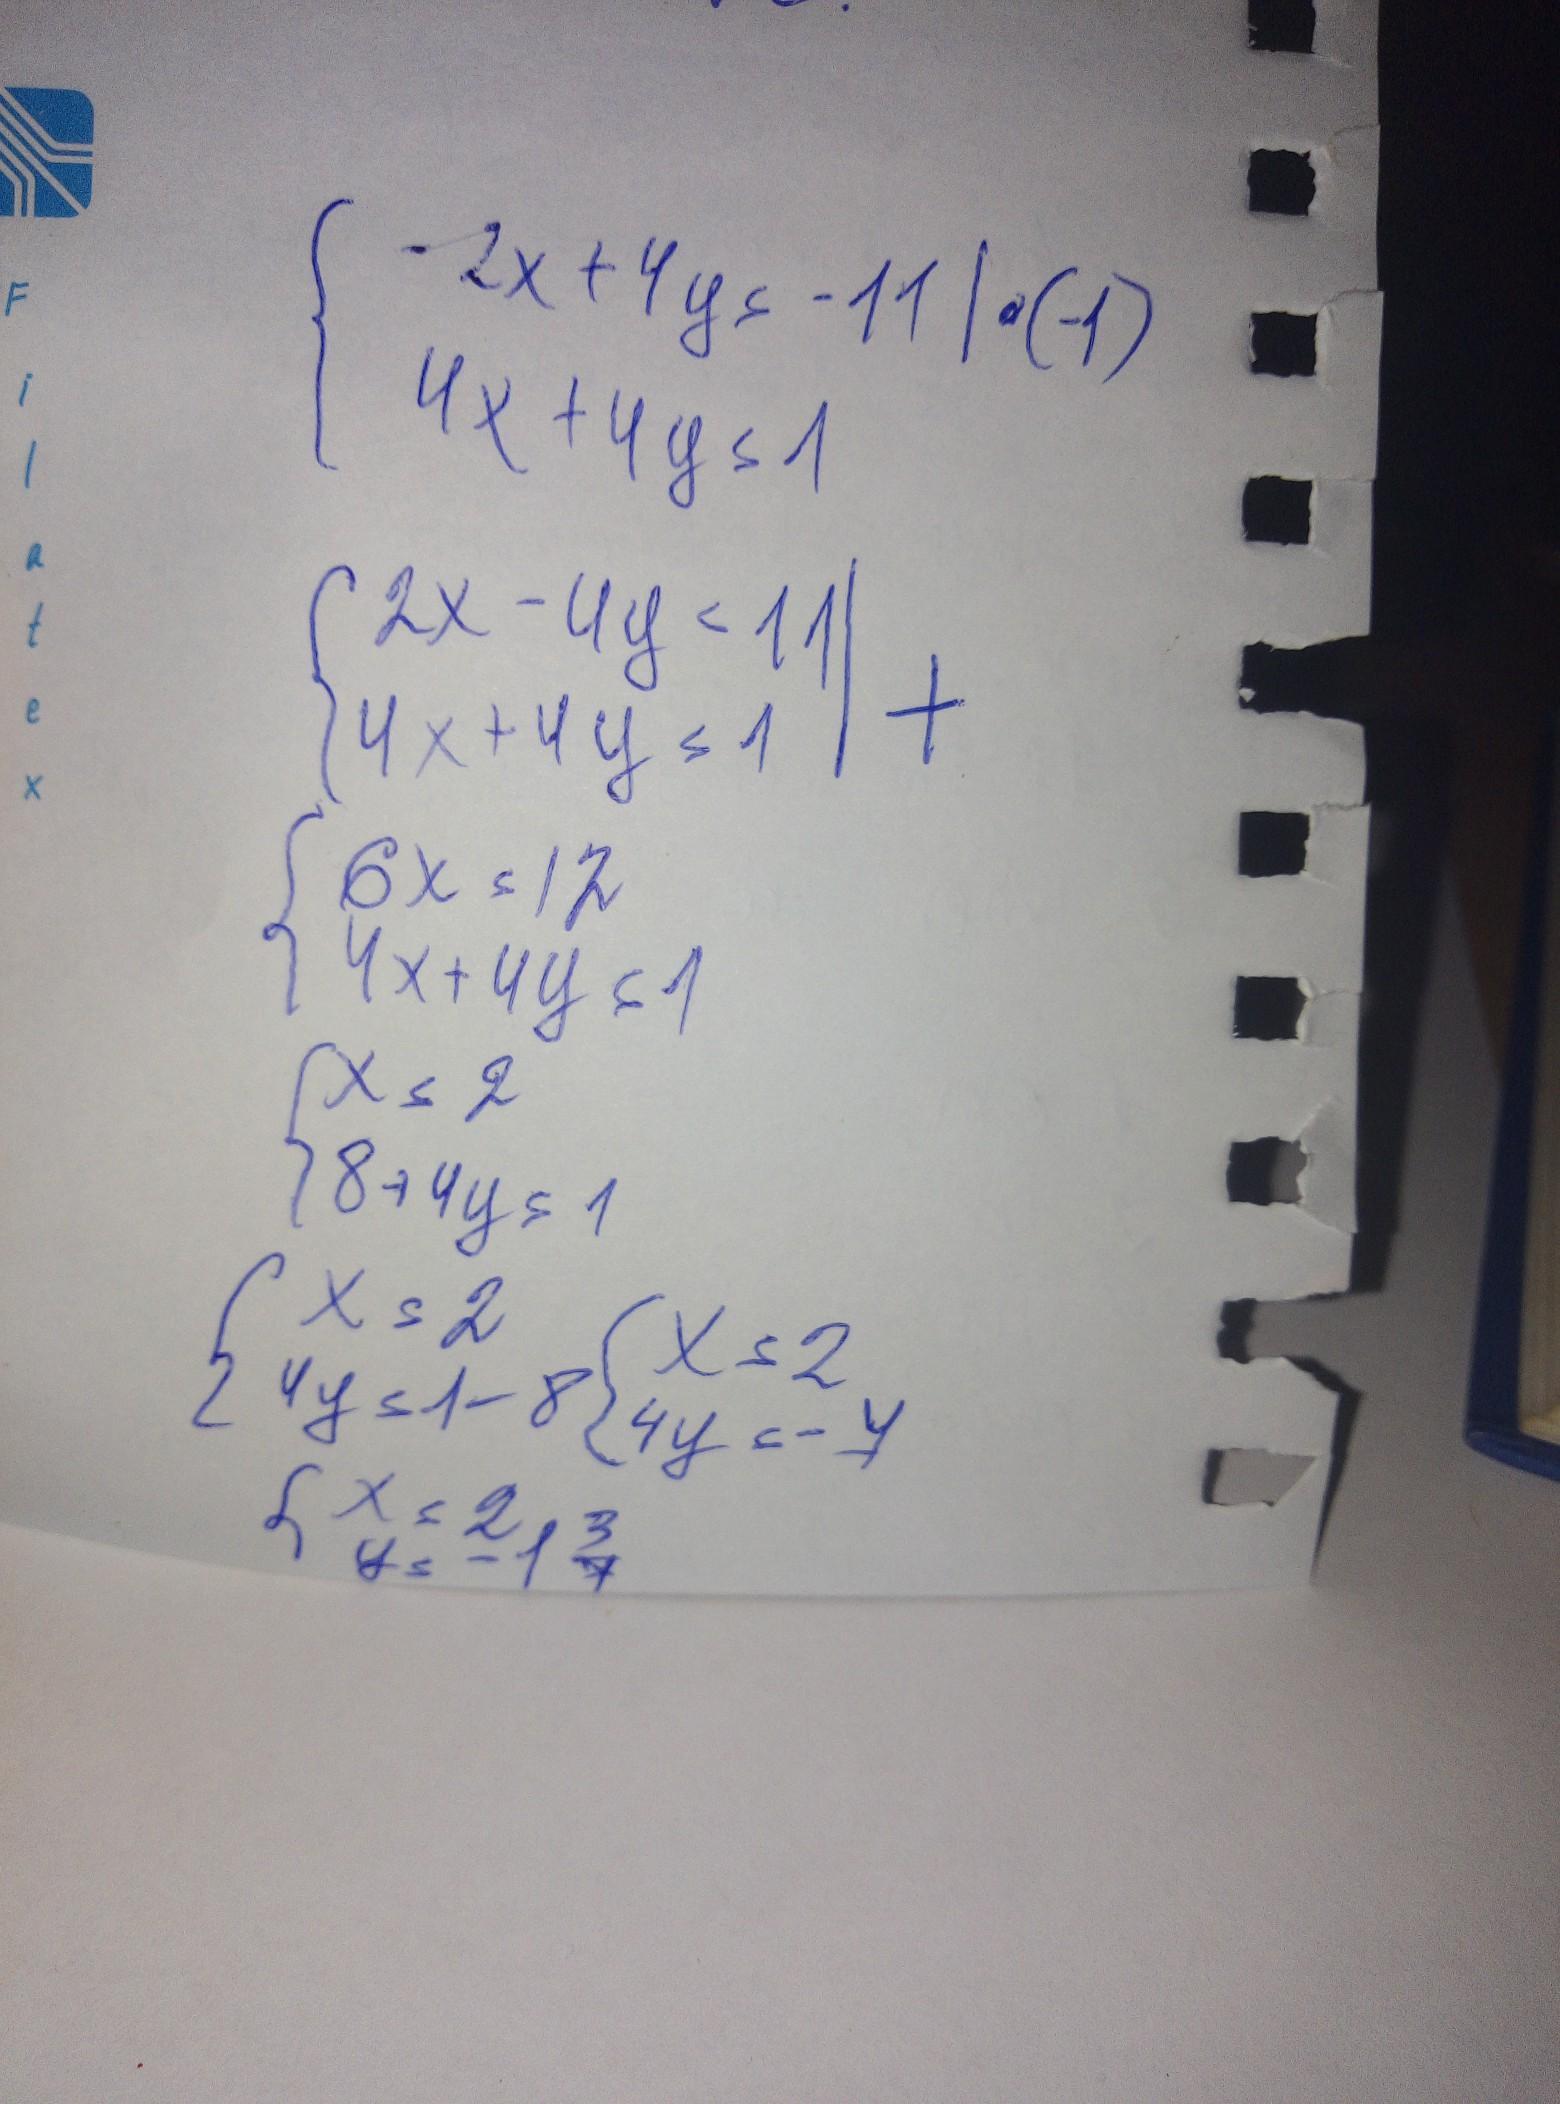 Filatex
-2x+4y=-11|·(-1)
4x+4y=1
2x-4y=11
4x+4y=1
+
6x=12
4x+4y=1
x=2
8+4y=1
x=2
4y=1-8
x=2
4y=-7
x=2
y=-1 3/4